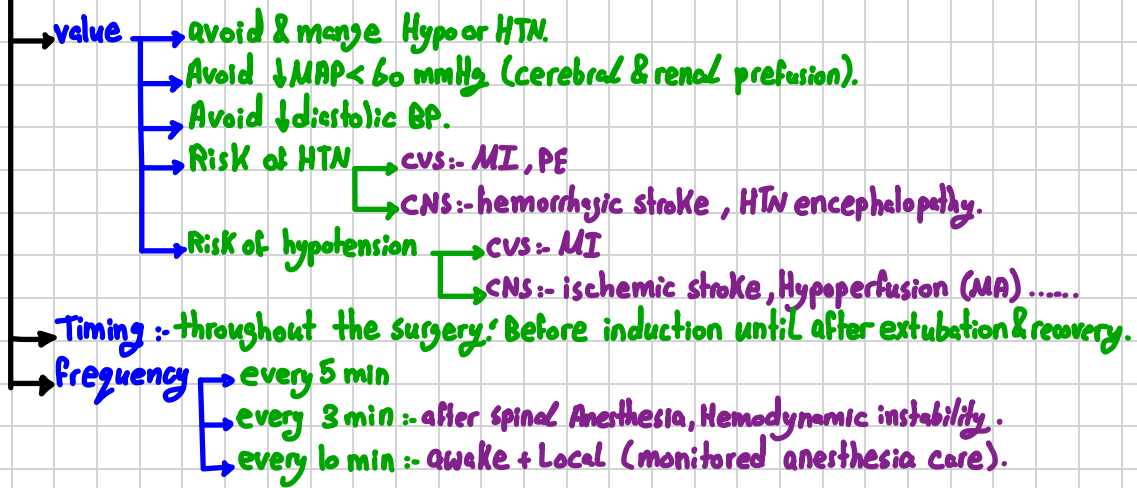 value → avoid & mange Hypo or HTN.
Avoid ↓MAP < 60 mmHg (cerebral & renal prefusion).
Avoid ↓diastolic BP.
Risk of HTN → CVS:- MI, PE
CNS:- hemorrhagic stroke, HTN encephalopathy.
Risk of hypotension → CVS:- MI
CNS:- ischemic stroke, Hypoperfusion (MA) ......
Timing :- throughout the surgery: Before induction until after extubation & recovery.
frequency → every 5 min
every 3 min :- after spinal Anesthesia, Hemodynamic instability.
every 10 min :- awake + Local (monitored anesthesia care).